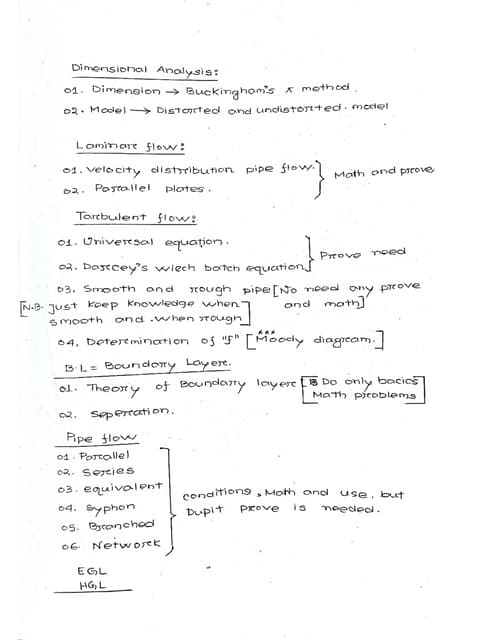 Dimensional Analysis:
01. Dimension → Buckingham's π method.
02. Model → Distorted and undistorted. model
Laminare flow:
01. Velocity distribution pipe flow.
02. Parallel plates.
Math and prove
Turbulent flow:
01. Universal equation.
02. Darcey's wiech batch equation
Prove need
03. Smooth and rough pipe [No need any prove and math]
[N.B. Just keep knowledge when smooth and .when rough]
04. Determination of "f" [*** Moody diagram.]
B.L = Boundary Layere.
01. Theory of Boundary layere [Do only bacics Math problems]
02. Seperation.
Pipe flow
01. Parallel
02. Series
03. equivalent
04. Syphon
05. Branched
06. Network
conditions, Math and use. but
Dupit prove is needed.
EGL
HGL